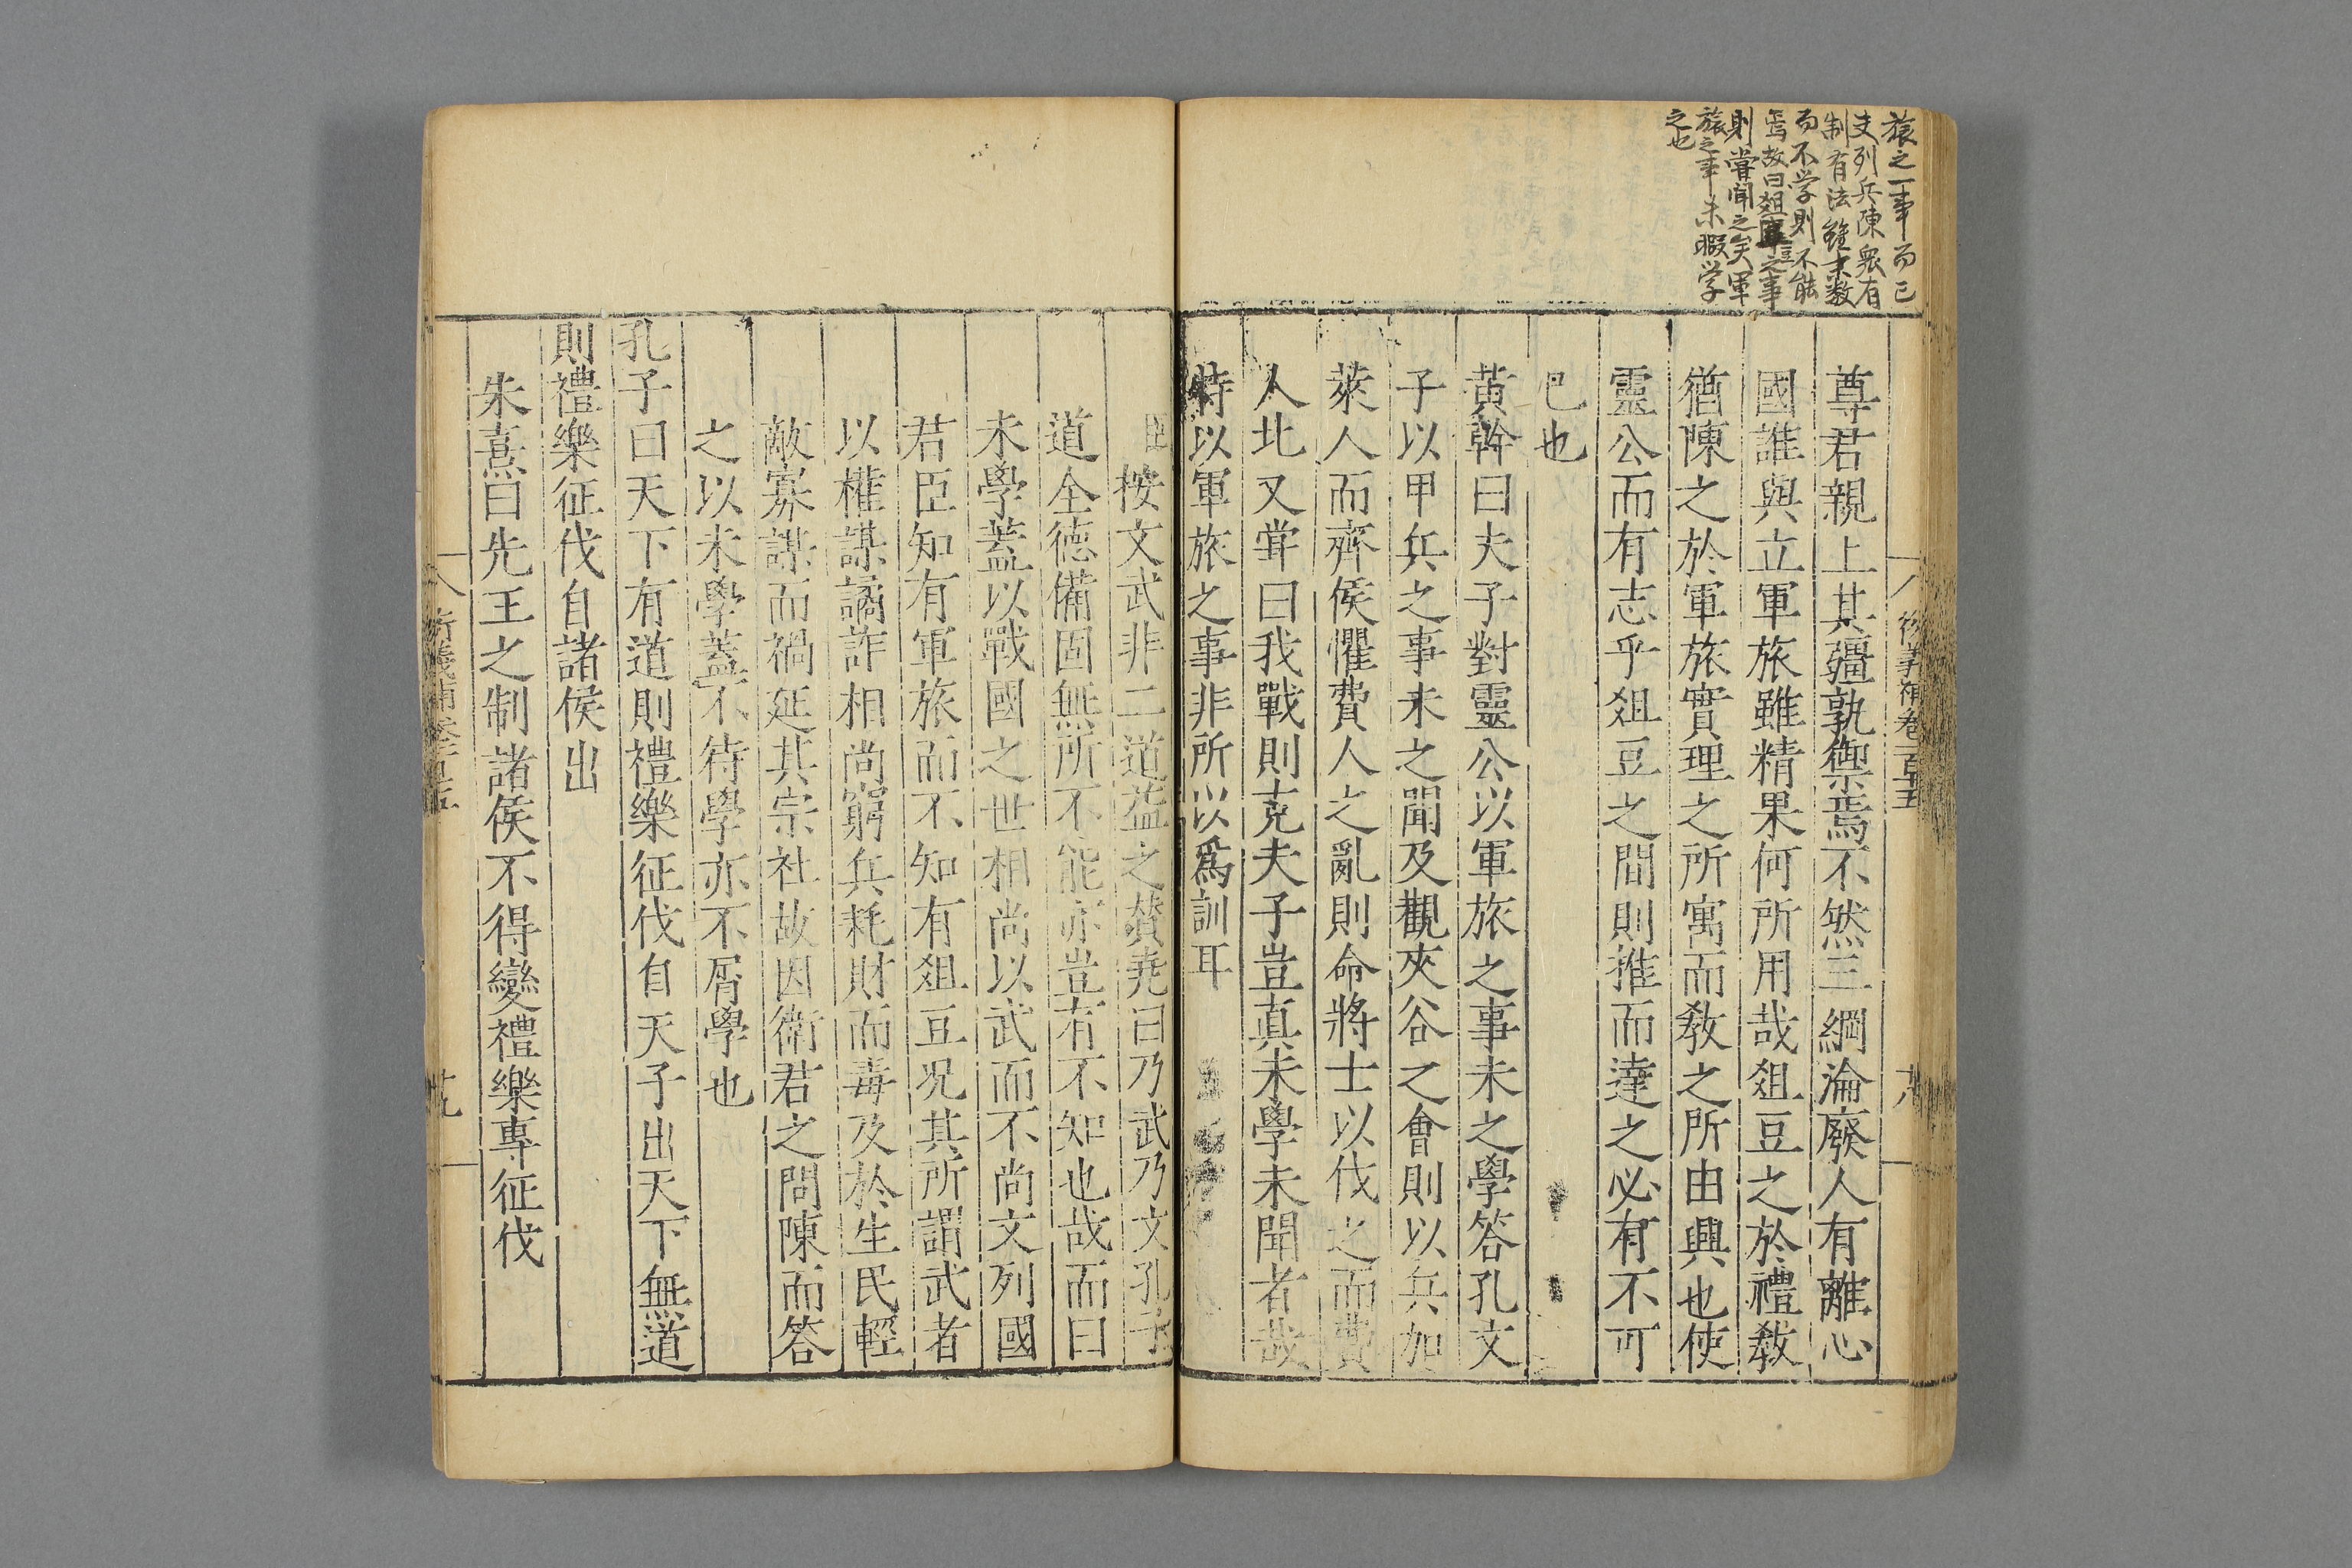 旅之一事而已
夫列兵陳衆有
制有法雖末數
而不学則不能
焉故曰俎豆之事
則嘗聞之矣軍
旅之事未暇学
之也
尊君親上其疆孰禦焉不然三綱淪廢人有離心
國誰與立軍旅雖精果何所用哉俎豆之於禮教
猶陳之於軍旅實理之所寓而教之所由興也使
靈公而有志乎俎豆之間則推而達之必有不可
已也
黃幹曰夫子對靈公以軍旅之事未之學答孔文
子以甲兵之事未之聞及觀夾谷之會則以兵加
萊人而齊侯懼費人之亂則命將士以伐之而費
人北又甞曰我戰則克夫子豈真未學未聞者哉
特以軍旅之事非所以爲訓耳
臣按文武非二道益之賛堯曰乃武乃文孔子
道全德備固無所不能亦豈有不知也哉而曰
未學蓋以戰國之世相尚以武而不尚文列國
君臣知有軍旅而不知有俎豆况其所謂武者
以權謀譎詐相尚窮兵耗財而毒及於生民輕
敵寡謀而禍延其宗社故因衛君之問陳而答
之以未學蓋不待學亦不屑學也
孔子曰天下有道則禮樂征伐自天子出天下無道
則禮樂征伐自諸侯出
朱熹曰先王之制諸侯不得變禮樂專征伐